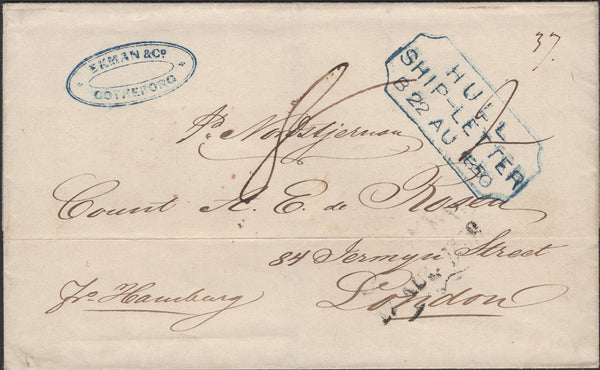 37.
EKMAN & Co
GOTHEBORG
HULL
SHIP-LETTER
B 22 AU 1850
8
Pr. Nordstjernan
Count A. E. de Rosen
84 Jermyn Street
London
fro Hamburg